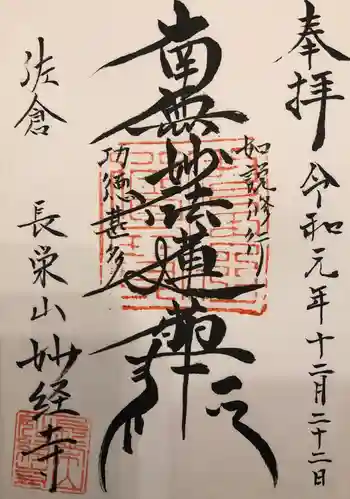 奉拝
令和元年十二月二十二日
如説修行
南無妙法蓮華経
功徳甚多
佐倉
長栄山
妙経寺